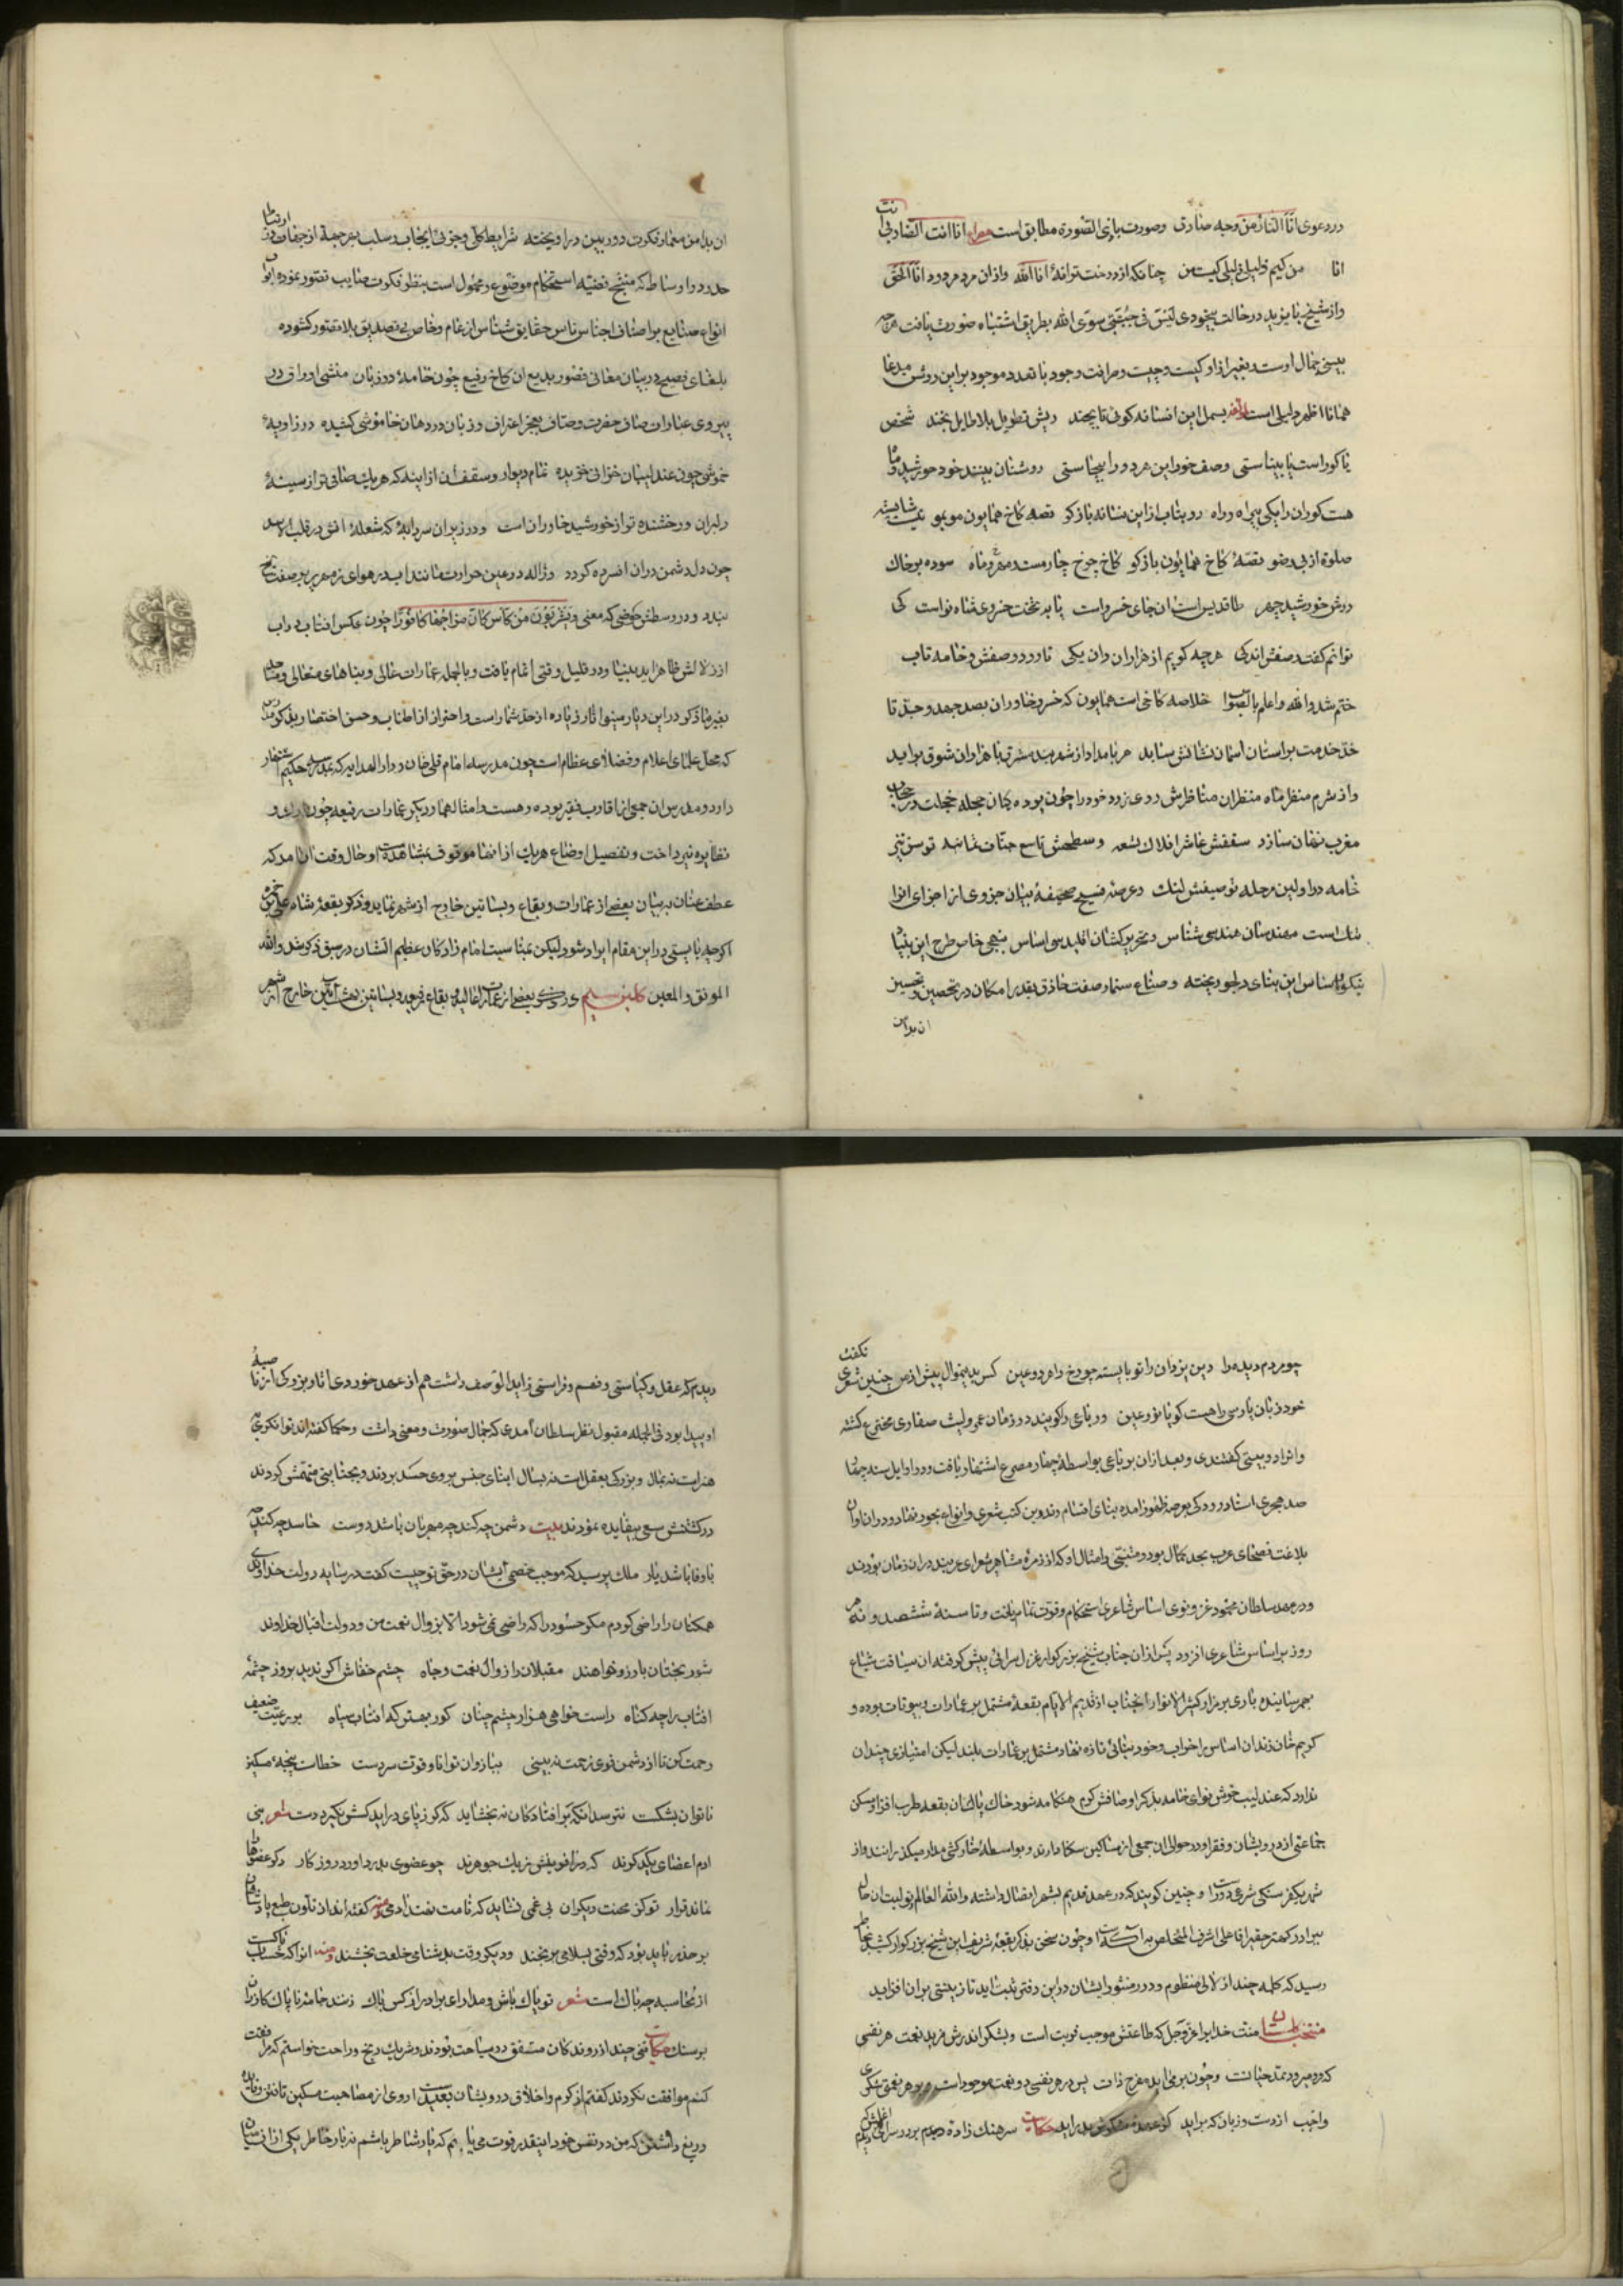 در دعوی انا النار من وجه صادق وصورت باذی الصورة مطابق است مصراع انا انت الضاربی انت
انا من کیم خلیلی ذلیلی کیست من چنانکه از درخت ترانهٔ انا الله وازان مرد مردود انا الحق
واز شیخ بایزید در حالت بیخودی لیس فی جبتی سوی الله بطریق اشتباه صورت یافت هرچه
بینی جمال اوست بغیر از او کیست وچیست ومرافت وجود با تعدد موجود براین روش مدعا
همانا اظهر دلیلی است بسمل این افسانه کوئی تا بچند ریش تطویل بلا طایل بخند شخص
نا کور است یا بیناستی وصف خور این هر دو را بیجاستی روشنان بینند خود خورشید وما
هست کوران را یکی بیراه وراه رو بتاب از این نشانه باز کو قصه کاخ همایون موبمو نیست شایسته
صلوة از بی وضو قصهٔ کاخ همایون باز کو کاخ چرخ چارمست ومهر وماه سوده بر خاک
درش خورشید چهر طاقدیس است آن جای خسرو است پا به تخت خسروی شاه نواست کی
توانم گفت وصفش اندکی هر چه کویم از هزاران وان یکی تا رود در وصفش وخامه تاب
ختم شد والله واعلم بالصواب خلاصه کاخی است همایون که خسرو خاوران بصد جهد وجد تا
خد خدمت بر استان اسمان نشانش ساید هر بامداد از شهر بند مشرق با هزاران شوق براید
واز شرم منظر ماه منظران مناظرش روی زرد خود را چون بوده کان حجله خجلت در حجاب
مغرب نهان سازد سقفش عاشر افلاک تسعه وسطحش تاسع جنات ثمانیه توسن تیز
خامه در اولین مرحله توصیفش لنگ وعرصه فسیح صحیفهٔ بیان جزوی از اجزای انرا
تنک است مهندسان هندسی شناس وتحریر کشان اقلیدسی اساس بنهجی خاص طرح این بنیا
نیکو اساس این بنای دلجو ریخته وصناع سنمار صفت حاذق بقدر امکان در تحصین وتحسین
ان بدامن
ان بدامن معمار فکرت دوربین دراویخته شرایط کلی وجزئی ایجاب وسلب بهر جهة از جهات در ارتباط
حدود واوساط که منتج قضیه استحکام موضوع ومحمول است بنظر فکرت صایب تصور نموده ابواب
انواع صنایع بر اصناف اجناس ناس حقایق شناس از عام وخاص بی تصدیق بلا تصور کشوده
بلغای فصیح در بیان معانی قصور بدیع ان کاخ رفیع چون خامهٔ دوزبان منشی اوراق در
پیروی عبارات صاف حضرت وصاف بعجز اعتراف وزبان در دهان خاموشی کشیده در زاویهٔ
خموشی چون عندلیبان خزانی خزیده تمام دیوار وسقف ان از ایینه که هر یک صافی تر از سینهٔ
دلبران ودرخشنده تر از خورشید خاوران است ودر زیر ان سردابهٔ که شعلهٔ اتش در قلب الاسد
چون دل دشمن در ان افسرده کردد وژاله در عین حرارت مانند اب در هوای زمهریر بر صفت یخ
بندد ودر وسطش حوضی که معنی ویشربون من کاس کان مزاجها کافورا چون عکس افتاب در اب
از زلالش ظاهر اید بنیا ودر قلیل وقتی اتمام یافت وبالجمله عمارات عالی وبناهای متعالی ومساجد
بغیر ما ذکر در این دیار مینو اثار زیاده از حد شمار است واحتراز از اطناب وحسن اختصار بذکر مدرسه
که محل علمای اعلام وفضلای عظام است چون مدرسه امام قلی خان ودار الهدایه که مدرسه حکیم اشتهار
دارد ومدرس ان جمعی از اقارب فقیر بوده وهست وامثالهما ودیکر عمارات رفیعه چون ... و
نقایره نپرداخت وتفصیل اوضاع هر یک از انها موقوف بمشاهده است اوحال وقت ان امد که
عطف عنان به بیان بعضی از عمارات وبقاع وبساتین خارج از شهر نماید وذکر بقعهٔ شاه علی بن حمزه
اکرچه بایستی در این مقام ایراد شود لیکن بمناسبت امام زادکان عظیم الشان در سبق ذکر شد والله
الموفق والمعین کلبن سیم در ذکر بعضی از عمارات عالیه وبقاع فرجه وبساتین بهشت ایین خارج از شهر
چو مردم دیده را دین یزدان را تو بایسته چو رخ را هر دو عین کس بدین منوال پیش از من چنین شعری نکفت
خود زبان پارسی را هست کویا نوع بین ورباعی را کویند در زمان عمرو لیث صفاری مخترع کشته
وانرا دو بیتی کفتندی وبعد ازان برباعی بواسطهٔ چهار مصرع اشتهار یافت ودر اوایل سنه چهار
صد هجری استاد رودکی بعرصه ظهور امده بنای اقسام تدوین کتب شعری وانواع بحور نهاد ودر ان اوان
بلاغت فصحای عرب بحد کمال بود ومتنبی وامثال او که از زمرهٔ مشاهیر شعرای عربند در ان زمان بودند
ودر عهد سلطان محمود غزنوی اساس شاعری استحکام وقوت تمام یافت وتا سنهٔ ششصد ونه هر
روز بر اساس شاعری افزود پس ازان جناب شیخ بزرکوار غزل سرائی پیش کرفته ان سیاقت شیاع
بهم رسانیده باری بر مزار کثیر الانوار انجناب از قدیم الایام بقعهٔ مشتمل بر عمارات وبیوتات بوده و
کریم خان زند ان اساس را خراب وخود بنائی تازه نهاد مشتمل بر عمارات بلند لیکن امتیازی چندان
ندارد که عندلیب خوش نوای خامه بذکر اوصافش کرم هنکامه شود خاک پاک ان بقعه طرب افزا ومسکن
جماعتی از درویشان وفقرا ودر حوالی ان جمعی از مساکین سکنا دارند وبواسطهٔ خارکشی مدار میکذرانند واز
شهر یکفرسنکی شرعی دور است وچنین کویند که در عهد قدیم بشهر اتصال داشته والله العالم تولیت ان حال
ببرادر کهتر حقیر اقا علی اشرف المتخلص به اکه است وچون سخن بذکر بقعهٔ شریف این شیخ بزرکوار کشید بخاطر
رسید که کلمه چند از لالی منظوم ودرر منثور ایشان در این دفتر ثبت اید تا زینتی بر ان افزاید
منتخب کلستان منت خدایرا عز وجل که طاعتش موجب قربت است وبشکر اندرش مزید نعمت هر نفسی
که فرو میرود ممد حیات است وچون برمی اید مفرح ذات پس در هر نفسی دو نعمت موجود است وبر هر نعمتی شکری
واجب از دست وزبان که براید کز عهدهٔ شکرش بدر اید حکایت سرهنک زادهٔ دیدم بر در سرای اغلمش
دیدم که عقل وکیاستی وفهم وفراستی زاید الوصف داشت هم از عهد خوردی اثار بزرکی از ناصیهٔ
او پیدا بود فی الجمله مقبول نظر سلطان امدی که جمال صورت ومعنی داشت وحکما کفته اند توانکری به
هنر است نه بمال وبزرکی بعقل است نه بسال ابنای جنس بر وی حسد بردند وبخیانتی متهمش کردند
در کشتنش سعی بیفایده نمودند بیت دشمن چه کند چه مهربان باشد دوست حاسد چه کند چه
با وفا باشد یار ملک پرسید که موجب خصمی ایشان در حق تو چیست کفت در سایه دولت خداوندی
همکنان را راضی کردم مکر حسود را که راضی نمی شود الا بزوال نعمت من ودولت اقبال خداوند
شور بختان بارزو خواهند مقبلان را زوال نعمت وجاه چشم خفاش اکر نه بیند بروز چشمهٔ
افتاب را چه کناه راست خواهی هزار چشم چنان کور بهتر که افتاب سیاه بر رعیت ضعیف
رحمت کن تا از دشمن قوی زحمت نه بینی ببازوان توانا وقوت سر دست خطاست پنجهٔ مسکین
ناتوان بشکست نترسد انکه بر افتادکان نه بخشاید که کر ز پای در اید کسش نکیرد دست شعر بنی
ادم اعضای یکدکرند که در افرینش ز یک جوهرند چو عضوی بدرد اورد روزکار دکر عضوها را
نماند قرار تو کز محنت دیکران بی غمی نشاید که نامت نهند ادمی ومنه کفته اند از تلون طبع پادشاهان
بر حذر باید بود که وقتی بسلامی برنجند ودیکر وقت بدشنامی خلعت بخشند ومنه انرا که حساب پاک است
از محاسبه چه باک است شعر تو پاک باش ومدار ای برادر از کس باک زنند جامه ناپاک کازران
بر سنک حکایت تنی چند از روندکان متفق در سیاحت بودند وشریک رنج وراحت خواستم که مرافقت
کنم موافقت نکردند کفتم از کرم واخلاق درویشان بعید است روی از مصاحبت مسکین تافتن وفایده
دریغ داشتن که من در نفس خود اینقدر قوت می یابم که یار شاطر باشم نه بار خاطر یکی از ان میان